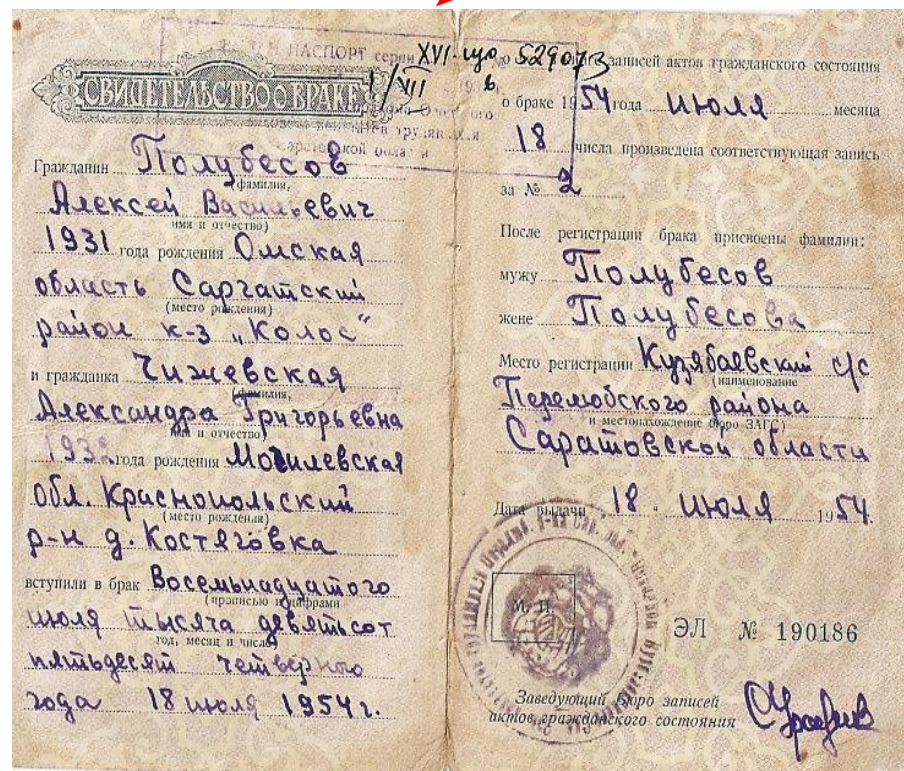 ПАСПОРТ серии XVI-цо № 529073
1/VII
СВИДЕТЕЛЬСТВО О БРАКЕ
Саратовской области
Гражданин Полубесов
фамилия,
Алексей Васильевич
имя и отчество)
1931 года рождения Омская
область Саргатский
(место рождения)
район к-з „Колос“
и гражданка Чижевская
(фамилия,
Александра Григорьевна
имя и отчество)
1932 года рождения Могилевская
обл. Краснопольский
(место рождения)
р-н д. Костяговка
вступили в брак Восемьнадцатого
(прописью и цифрами
июля тысяча девятьсот
год, месяц и число)
пятьдесят четверного
года 18 июля 1954 г.
записей актов гражданского состояния
о браке 1954 года июля месяца
18 числа произведена соответствующая запись
за № 2
После регистрации брака присвоены фамилии:
мужу Полубесов
жене Полубесова
Место регистрации Кузябаевский с/с
(наименование
Перелюбского района
и местонахождение бюро ЗАГС)
Саратовской области
Дата выдачи 18 " июля 1954.
М. П.
ЭЛ № 190186
Заведующий Бюро записей
актов гражданского состояния